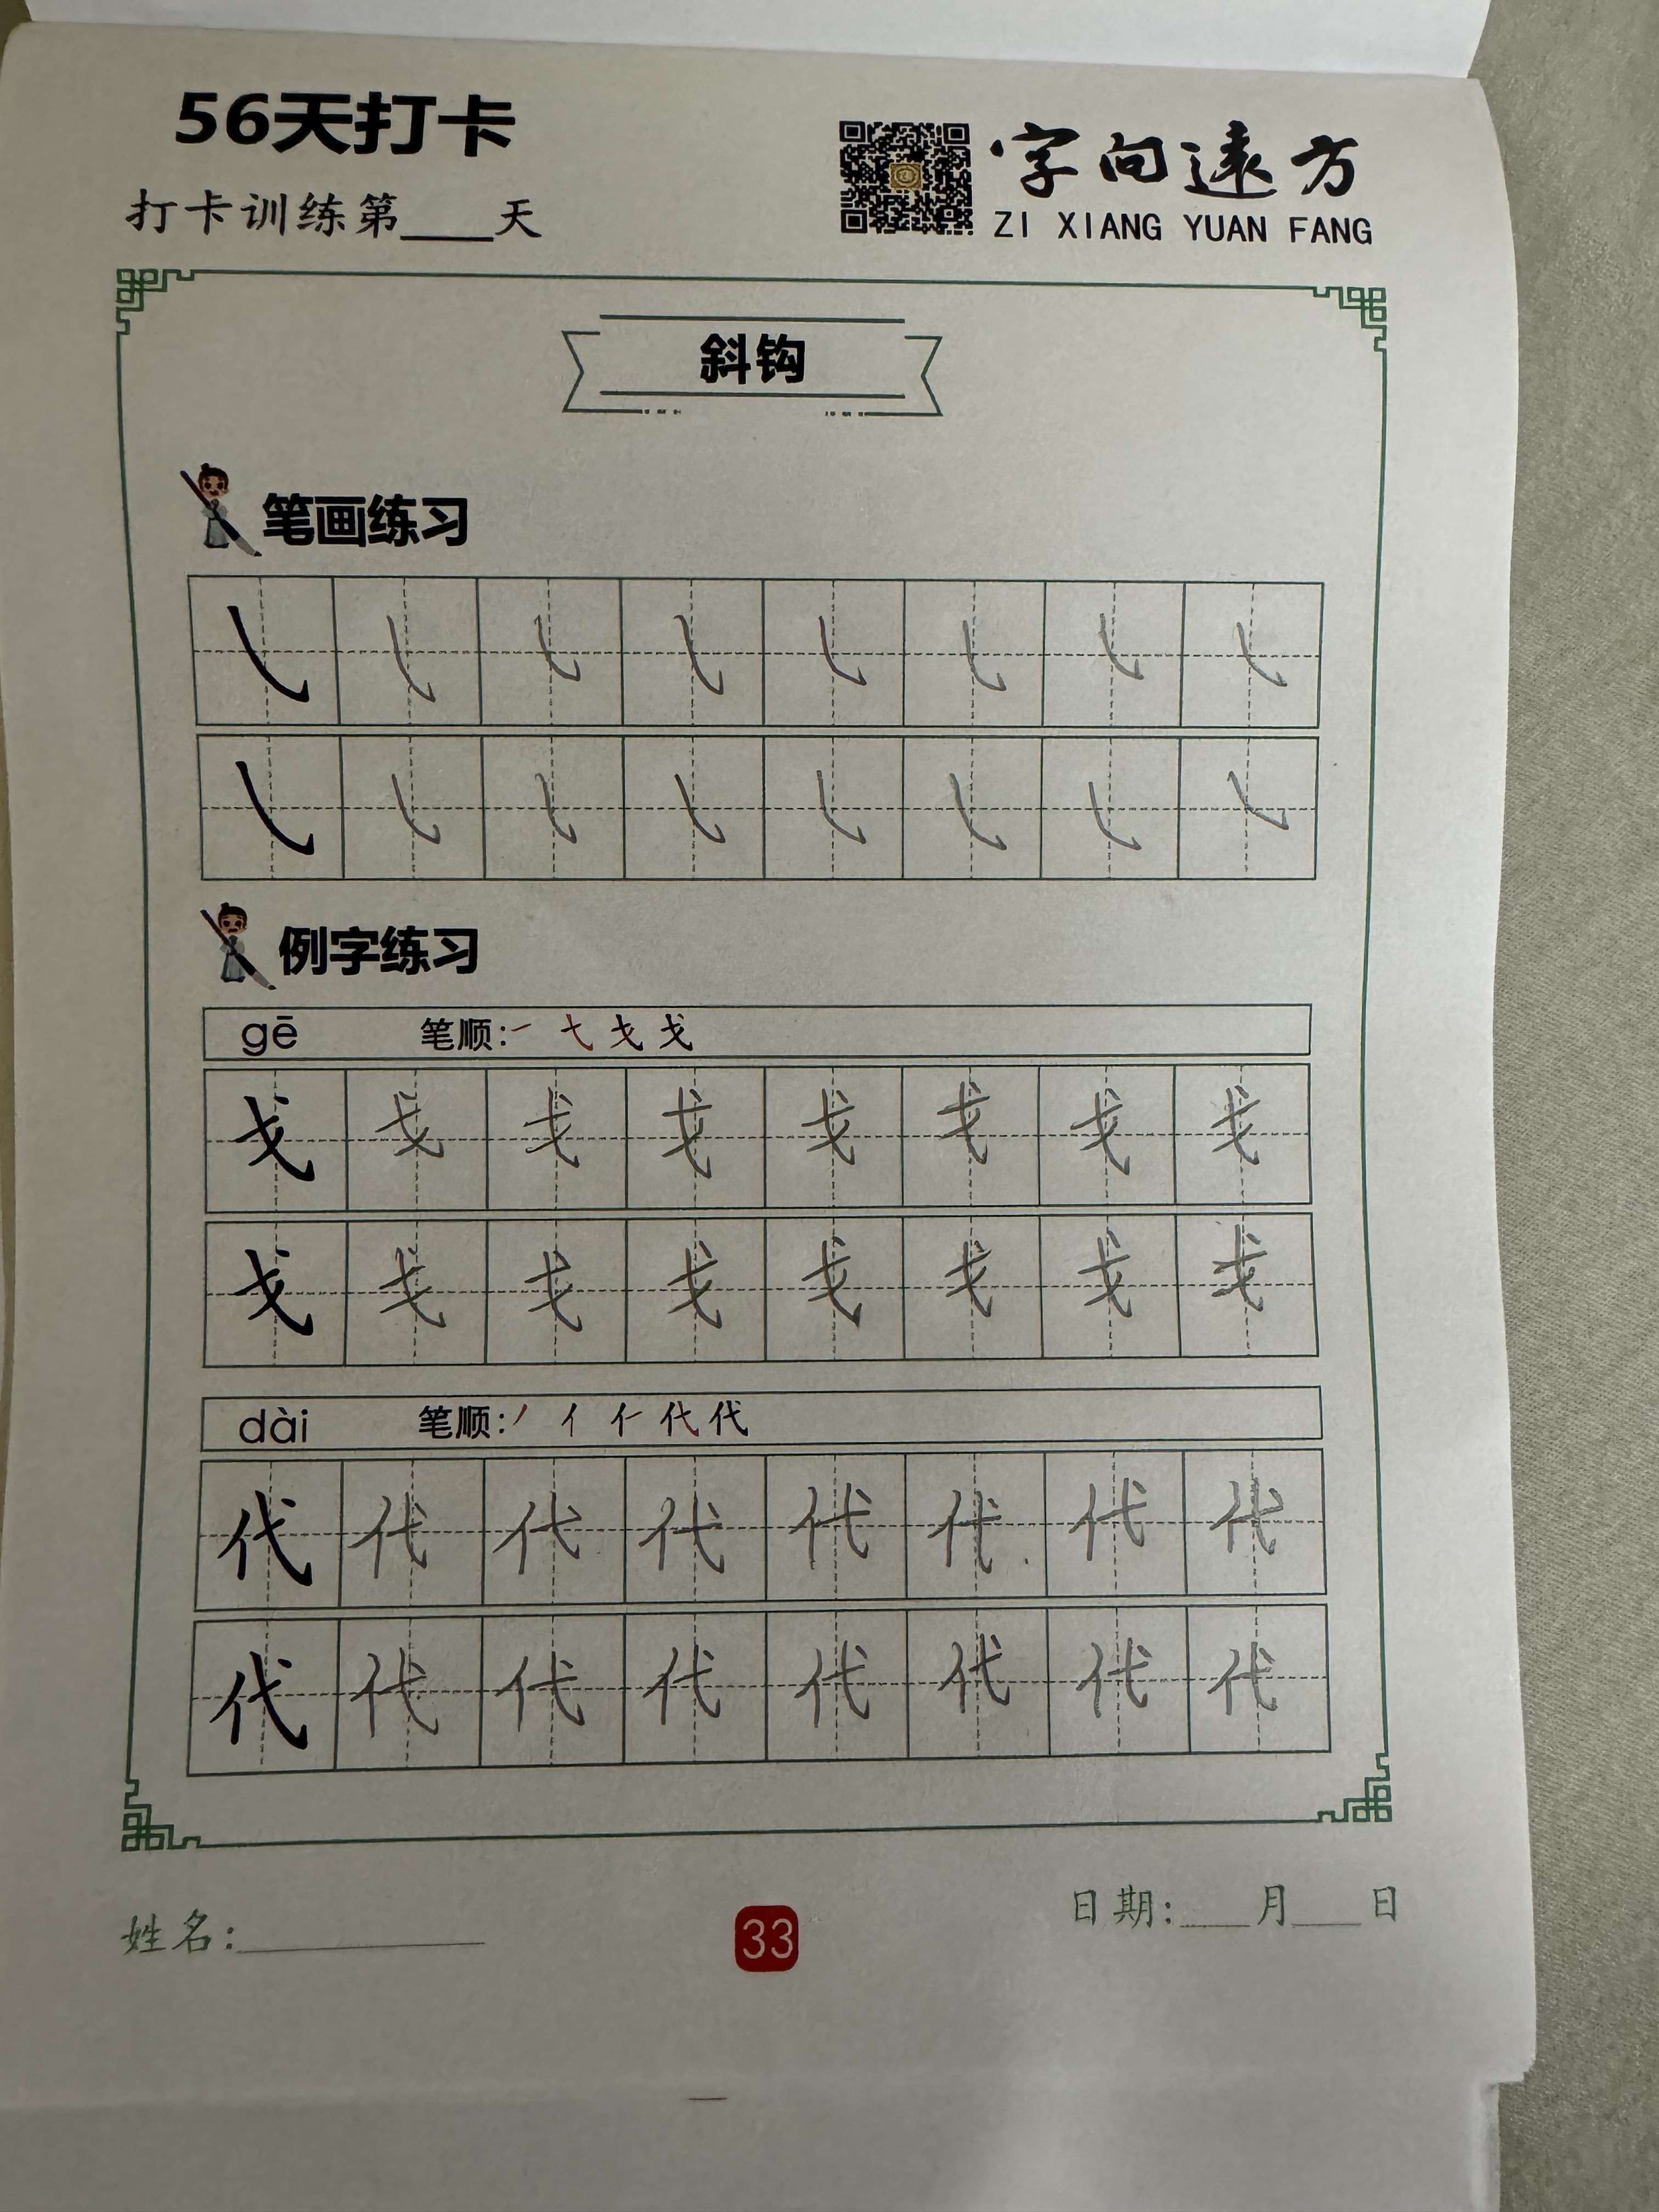 56天打卡
打卡训练第____天
字向遠方
ZI XIANG YUAN FANG
斜钩
笔画练习
㇂ ㇂ ㇂ ㇂ ㇂ ㇂ ㇂ ㇂
㇂ ㇂ ㇂ ㇂ ㇂ ㇂ ㇂ ㇂
例字练习
gē 笔顺: 一 弋 戈 戈
戈 戈 戈 戈 戈 戈 戈 戈
戈 戈 戈 戈 戈 戈 戈 戈
dài 笔顺: 丿 亻 仁 代 代
代 代 代 代 代 代 代 代
代 代 代 代 代 代 代 代
姓名:__________
33
日期:___月___日